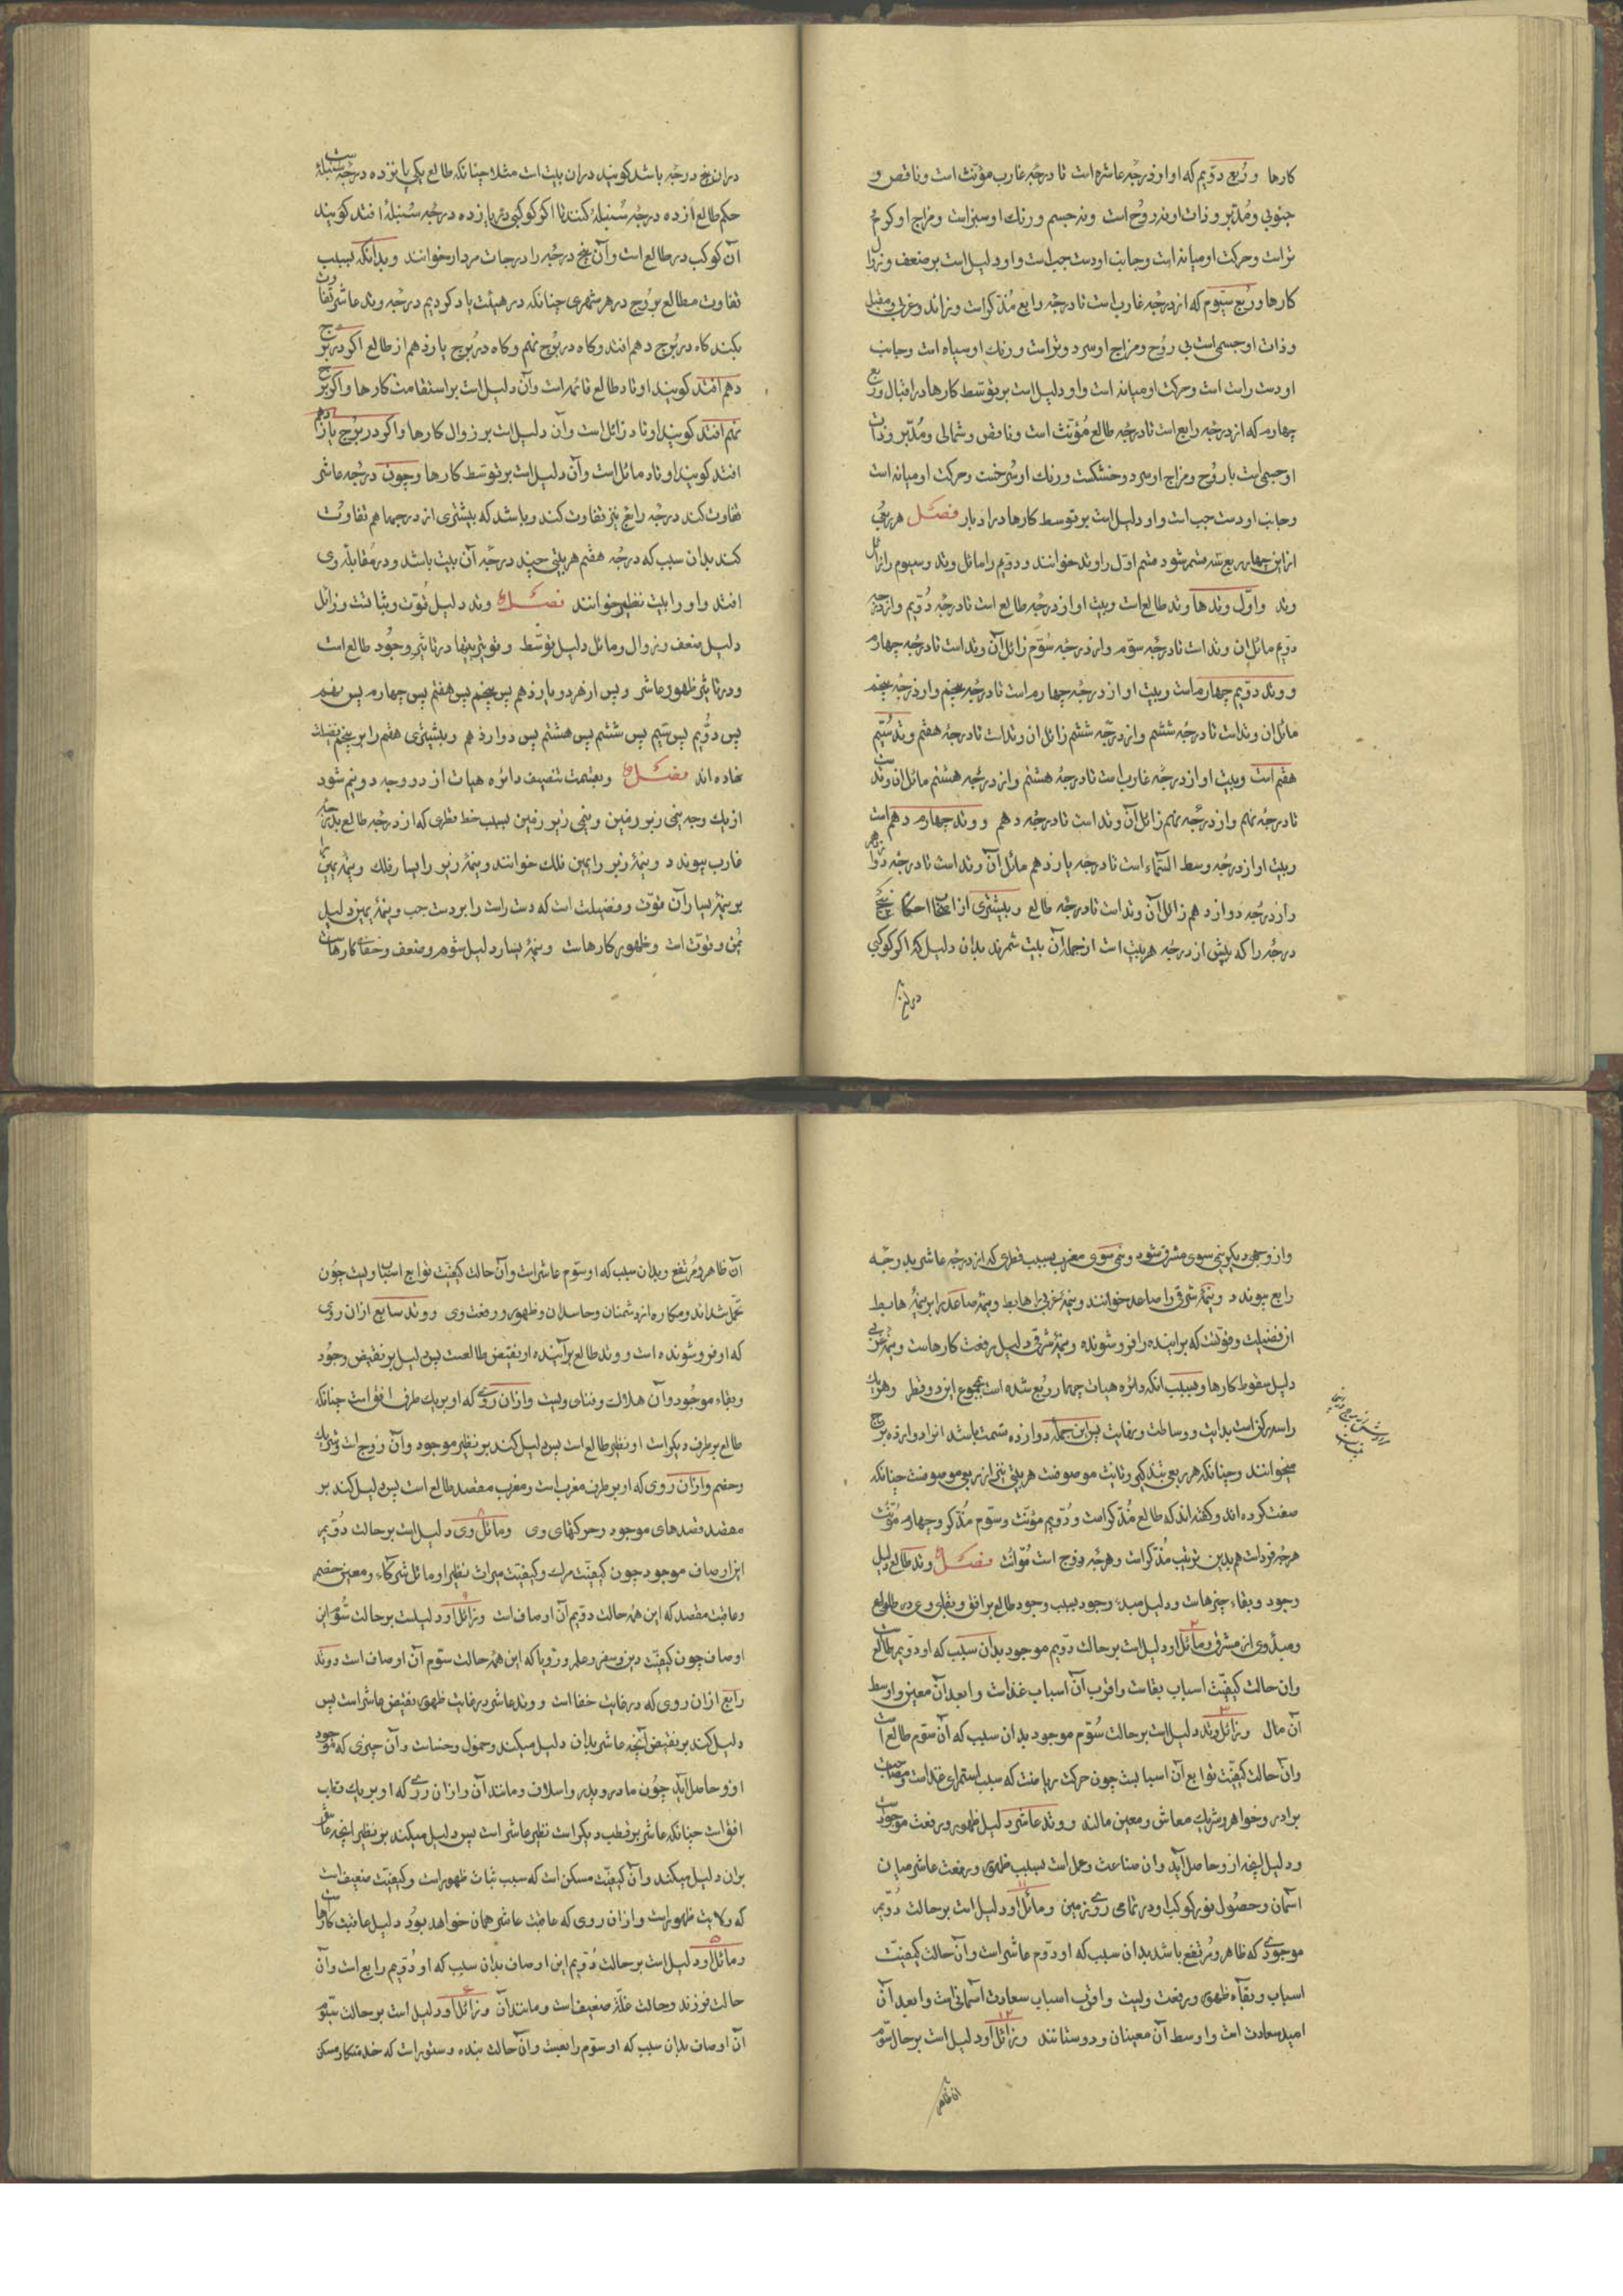 کارها و رُبع دوّیم که او از درجهٔ عاشره است تا درجهٔ غارب مؤنّث است و ناقص و
جنوبی و مُدبّر و ذات او نه روُح است و نه جسم و رنك او سبز است و مزاج او کرم و
تر است و حرکت او میانه است و جانب او دست چپ است و او دلیل است بر ضعف و زوال
کارها و رُبع سیّوم که از درجهٔ غارب است تا درجهٔ رابع مُذکّر است و زائد و غربی و مقبل
و ذات او جسمی است بی روُح و مزاج او سرد و تر است و رنك او سیاه است و جانب
او دست راست است و حرکت او میانه است و او دلیل است بر توسّط کارها در اقبال و ربع
چهارم که از درجهٔ رابع است تا درجهٔ طالع مُؤنّث است و ناقص و شمالی و مُدبّر و ذات
او جسمی است با روُح و مزاج او سرد و خشکست و رنك او سُرخست و حرکت او میانه است
و جانب او دست چپ است و او دلیل است بر توسط کارها در ادبار فصل هر ربعی
از این چهار ربع بسه قسم شود قسم اوّل را وتد خوانند و دوّیم را مائل وتد و سیوم را زائل
وتد و اوّل وتدها وتد طالع است و بیت او از درجهٔ طالع است تا درجهٔ دُوّیم و از درجهٔ
دوّیم مائل ان وتد است تا درجهٔ سوّم و از درجهٔ سُوّم زائل آن وتد است تا درجهٔ چهارم
و وتد دوّیم چهارم است و بیت او از درجهٔ چهارم است تا درجهٔ پنجم و از درجهٔ پنجم
مائل ان وتد است تا درجهٔ ششم و از درجهٔ ششم زائل ان وتد است تا درجهٔ هفتم و وتد سُیّم
هفتم است و بیت او از درجهٔ غارب است تا درجهٔ هشتم و از درجهٔ هشتم مائل ان وتد است
تا درجهٔ نهم و از درجهٔ نهم زائل آن وتد است تا درجهٔ دهم و وتد چهارم دهم است
و بیت او از درجهٔ وسط السّماء است تا درجهٔ یازدهم مائل آن وتد است تا درجهٔ دوازدهم
و از درجهٔ دوازدهم زائل آن وتد است تا درجهٔ طالع و بیشتری از اصحاب احکام پنج
درجه را که پیش از درجهٔ هر بیت است از جملهٔ آن بیت شمرند بدان دلیل که اکر کوکبی
در ان پنج
در ان پنج درجه باشد کویند در ان بیت است مثلا چنانکه طالع یکی پانزده درجهٔ سُنبله است
حکم طالع از ده درجهٔ سُنبله کنند تا اکر کوکبی در یازده درجهٔ سُنبله افتد کویند
آن کوکب در طالع است و آن پنج درجه را درجات مردار خوانند و بدانکه بسبب
تفاوت مطالع برُوج در هر شهری چنانکه در هیئت یاد کردیم درجهٔ وتد عاشر تفاوت
بکند کاه در بُرج دهم افتد و کاه در بُرج نهم و کاه در بُرج یازدهم از طالع اکر در برج
دهم افتد کویند اوتاد طالع قائمه است و آن دلیل است بر استقامت کارها و اکر در برج
نهم افتد کویند اوتاد زائل است و آن دلیل است بر زوال کارها و اکر در برُج یازدهم
افتد کویند اوتاد مائل است و آن دلیل است بر توسّط کارها و چون درجهٔ عاشر
تفاوت کند درجهٔ رابع نیز تفاوت کند و باشد که بیشتری از درجها هم تفاوت
کند بدان سبب که درجهٔ هفتم هر بیتی چند درجهٔ آن بیت باشد و در مُقابلهٔ وی
افتد و او را بیت نظیر خوانند فصل وتد دلیل قوّت و ثباتست و زائل
دلیل ضعف و زوال و مائل دلیل توسّط و قویتر بیتها در تاثیر وجُود طالع است
و در تاثیر ظهور عاشر و پس از هر دو یازدهم پس پنجم پس هفتم پس چهارم پس نهم
پس دوُّیم پس سیّم پس ششم پس هشتم پس دوازدهم و بیشتری هفتم را بر پنجم تفضیلت
نهاده اند فصل و بقسمت تنصیف دائره هیات از دو وجه دو نیم شود
از یك وجه نیمی زبر زمین و نیمی زیر زمین بسبب خط قطری که از درجهٔ طالع بدرجهٔ
غارب پیوندد و نیمهٔ زبر را یمین فلك خوانند و نیمهٔ زیر را یسار فلك و نیمهٔ یمین را
بر نیمهٔ یسار آن قوّت و فضیلت است که دست راست را بر دست چپ و نیمهٔ یمین دلیل
یُمن و قوّت است و ظهور کارهاست و نیمهٔ یسار دلیل شوم و ضعف و خفای کارهاست
و از وجه دیکر نیمی سوی مشرق شود و نیمی سوی مغرب بسبب قطری که از درجهٔ عاشر بدرجهٔ
رابع پیوندد و نیمهٔ شرقی را صاعد خوانند و نیمهٔ غربی را هابط و نیمهٔ صاعد را بر نیمهٔ هابط
ان فضیلت و قوّتست که برآینده را فروشونده و نیمهٔ شرقی دلیل رفعت کارهاست و نیمهٔ غربی
دلیل سقوط کارها و بسبب انکه دائره هیات چهار رُبع شده است بمجموع این دو قطر و هر یك
را سه رکن است بدایت و وساطت و نهایت پس این جمله دوازده قسمت باشد انرا دوازده برج
میخوانند و چنانکه هر ربعی بتذکیر و تانیث موصوفست هر بیتی نیز از ربعی موصوفست چنانکه
صفت کرده اند و کفته اند که طالع مُذکّر است و دُوّیم مؤنّث و سوّم مُذکّر و چهارم مُؤنّث
هر چه فرد است هم بدین ترتیب مُذکّر است و هر چه زوج است مُؤنّث فصل وتد طالع دلیل
وجود و بقاء چیزهاست و دلیل مبدء وجود بسبب وجود طالع بر افق و بقای وی در طلوع
و مبدء وی از مشرق و مائل او دلیل است بر حالت دوّیم موجود بدان سبب که او دوّیم طالع است
و ان حالت کیفیّت اسباب بقاست و اقرب آن اسباب غذاست و ابعد آن معین و اوسط
آن مال و زائل وتد دلیل است بر حالت سُوّم موجود بدان سبب که آن سوّم طالع است
و ان حالت کیفیّت توابع آن اسبابست چون حرکت ریاضت که سبب استمرای غذاست و مصاحبت
برادر و خواهر و شریك معاش و معین مالند و وتد عاشر دلیل ظهور و رفعت موجود است
و دلیل انچه از و حاصل آید و ان صناعت و عمل است بسبب ظهور و رفعت عاشر میان
اسمان و حصُول نور کوکب او در تمامی روی زمین و مائل او دلیل است بر حالت دُوّیم
موجودی که ظاهر و مُرتفع باشد بدان سبب که او دوّم عاشر است و آن حالت کیفیّت
اسباب و بقآء ظهور و رفعت ویست و اقرب اسباب سعادت آسمانی است و ابعد آن
امید سعادت است و اوسط آن معینان و دوستانند و زائل او دلیل است بر حال سوّم
آن ظاهر
آن ظاهر و مُرتفع و بدان سبب که او سوّم عاشر است و آن حالت کیفیّت توابع اسباب ویست چون
تحمّل شداند و مکاره از دشمنان و حاسدان و ظهور و رفعت وی و وتد سابع ازان روی
که او فروشونده است و وتد طالع برآینده او نقیض طالعست پس دلیل بر نقیض وجُود
و بقاء موجُود و آن هلاکت و فنای ویست و ازان روی که او بر یك طرف افق است چنانکه
طالع بر طرف دیکر است او نظیر طالع است پس دلیل کند بر نظیر موجود و آن زوج است و شریك
و خصم و ازان روی که او بر طرف مغرب است و مغرب مقصد طالع است پس دلیل کند بر
مقصد قصدهای موجود و حرکتهای وی و مائل وی دلیل است بر حالت دُوّیم
این اوصاف موجود چون کیفیّت مرك و کیفیّت میراث نظیر او مائل شرکاء و معین خصم
و عاقبت مقصد که این همه حالت دوّیم آن اوصاف است و زائل او دلیلست بر حالت سُوّم این
اوصاف چون کیفیّت دین و سفر و علم و رؤیا که این همه حالت سوّم آن اوصاف است و وتد
رابع ازان روی که در غایت خفا است و وتد عاشر در غایت ظهور نقیض عاشر است پس
دلیل کند بر نقیض آنچه عاشر بدان دلیل میکند و خمول و خساست و آن چیزی که موجود
ازو حاصل آید چوُن مادر و پدر و اسلاف و مانند آن و ازان روی که او بر یك قطب
افق است چنانکه عاشر بر قطب دیکر است نظیر عاشر است پس دلیل میکند بر نظیر انچه عاشر
بران دلیل میکند و آن کیفیّت مسکن است که سبب ثبات ظهور است و کیفیّت ضعیف است
که ولایت ظهور است و ازان روی که عاقبت عاشر همان خواهد بوُد دلیل عاقبت کارهاست
و مائل او دلیل است بر حالت دُوّیم این اوصاف بدان سبب که او دُوّیم رابع است و آن
حالت فرزند و حالت غلّهٔ ضعیف است و مانند آن و زائل او دلیل است بر حالت سیّوم
آن اوصاف بدان سبب که او سوّم رابعست و آن حالت بنده و ستور است که خدمتکار مسکن